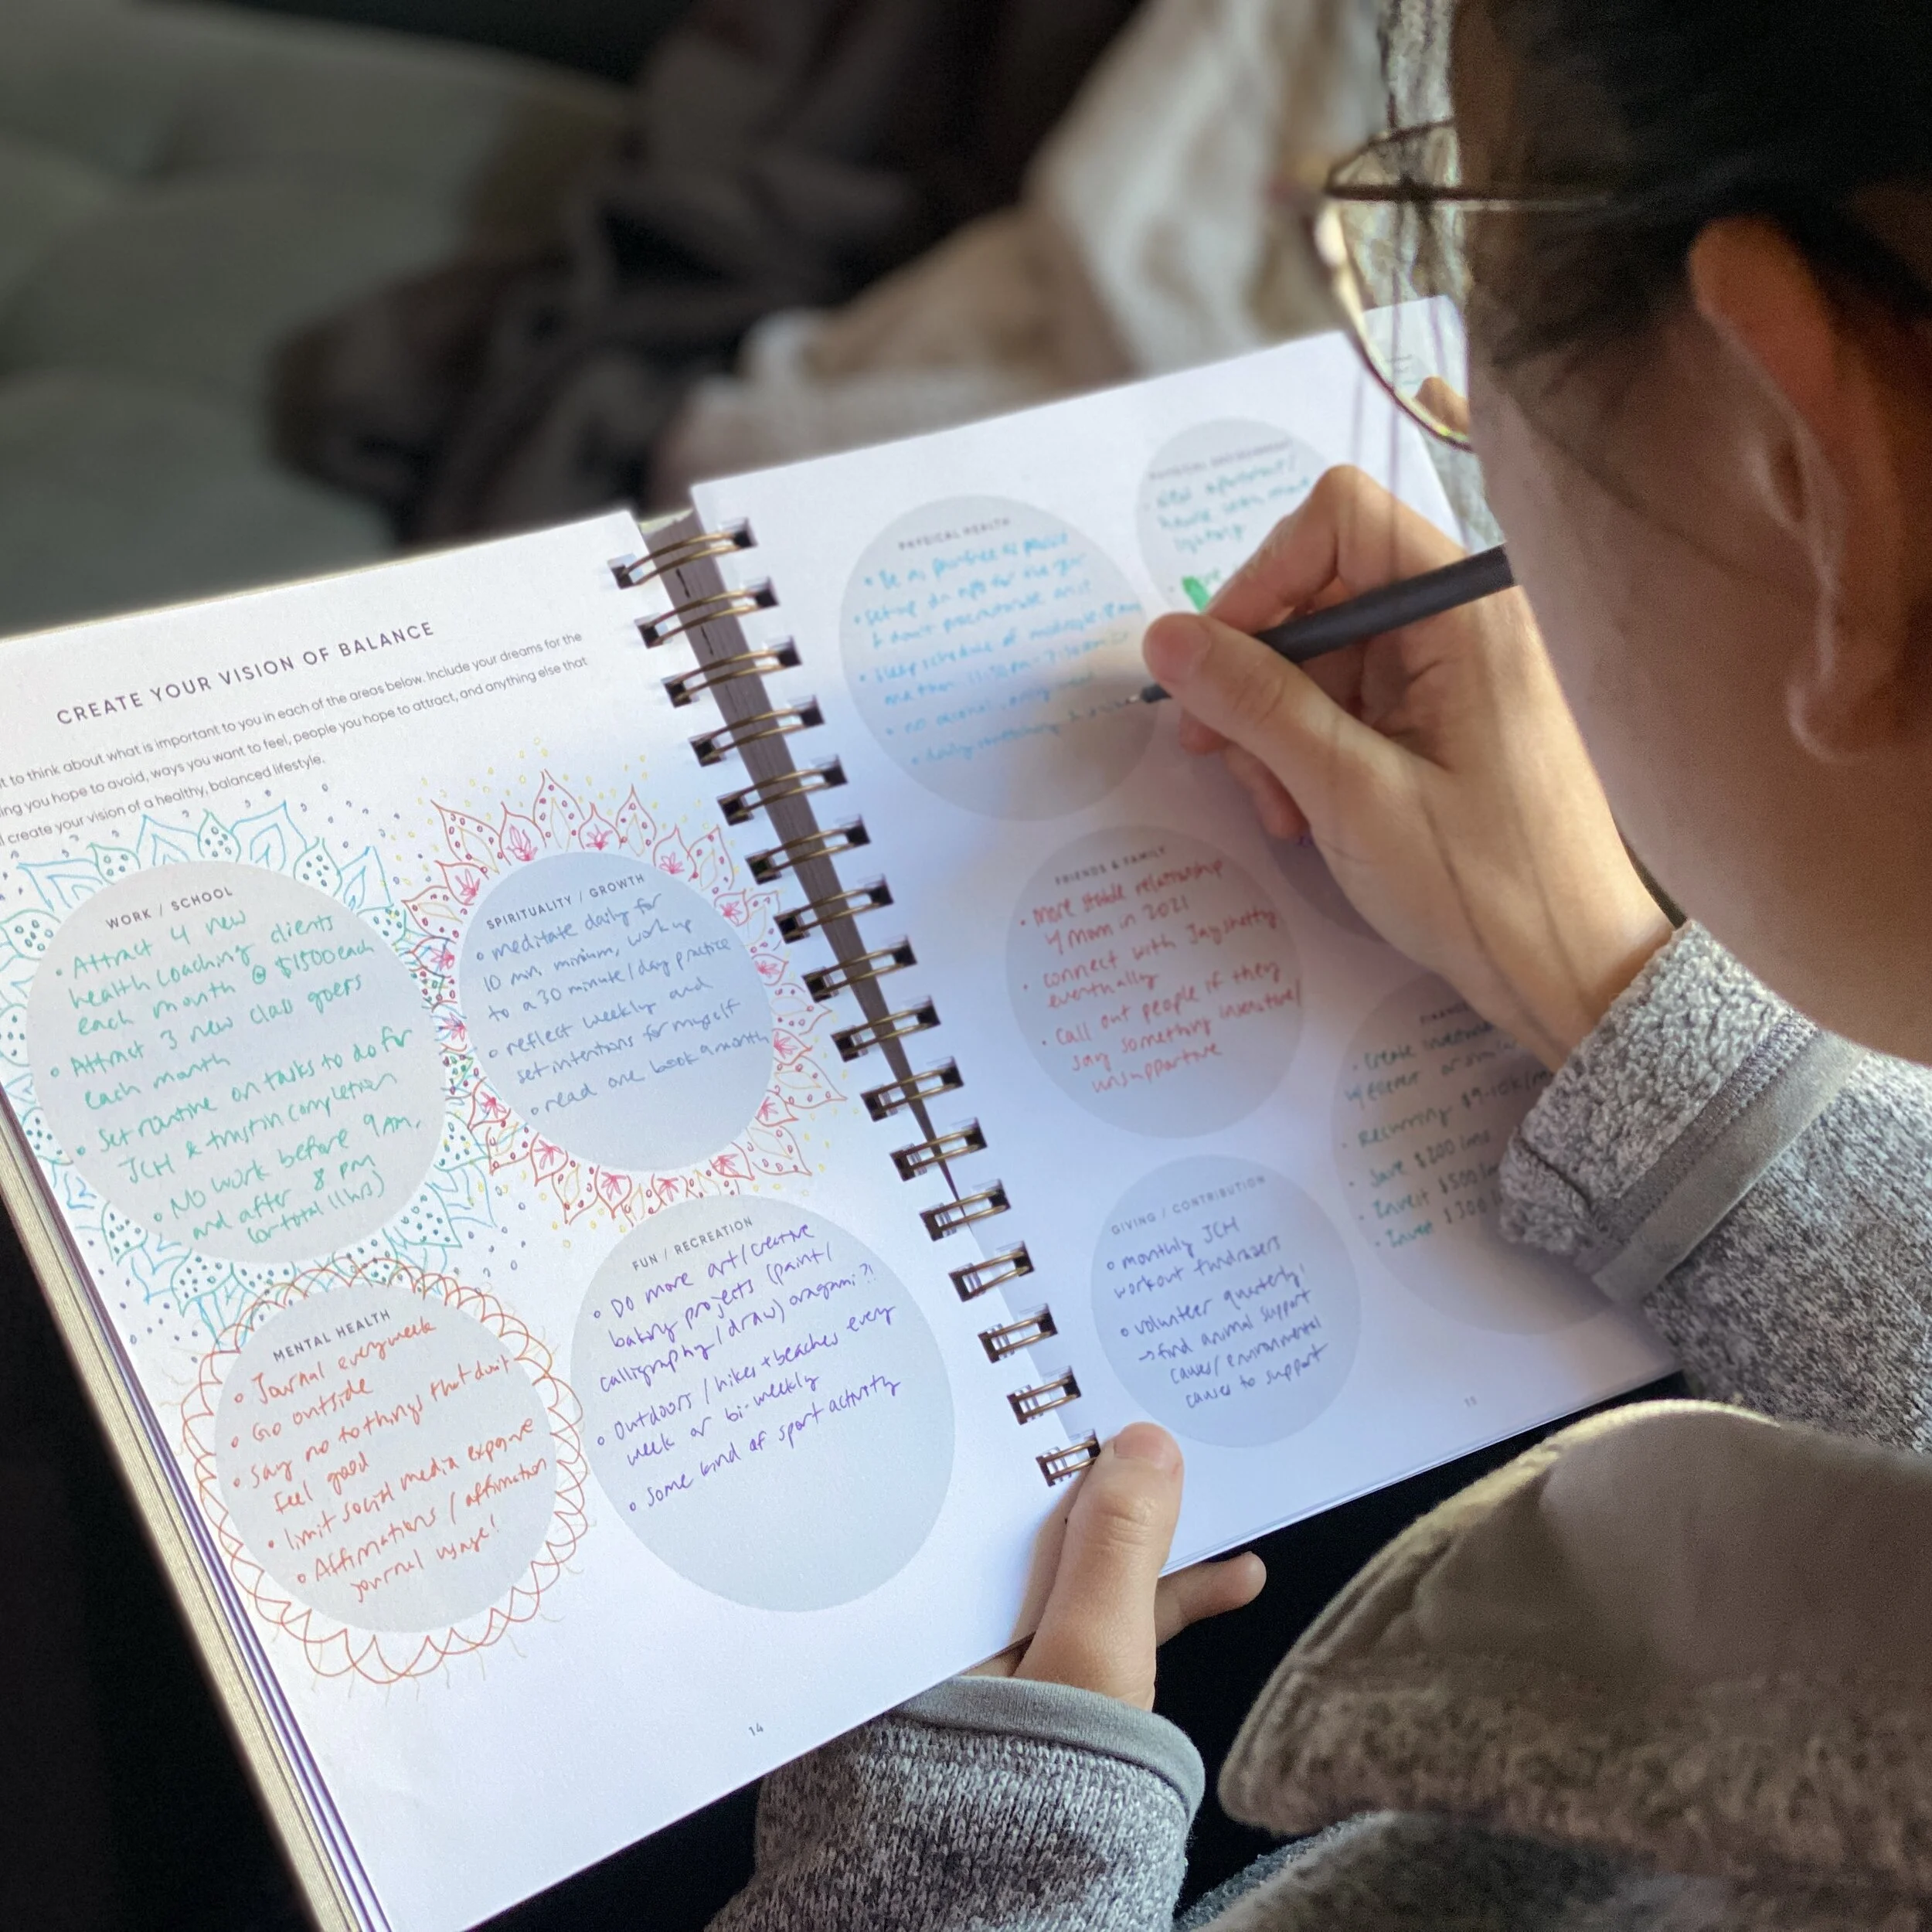 CREATE YOUR VISION OF BALANCE
to think about what is important to you in each of the areas below. Include your dreams for the
you hope to avoid, ways you want to feel, people you hope to attract, and anything else that
create your vision of a healthy, balanced lifestyle.
WORK / SCHOOL
• Attract 4 new
health coaching clients
each month @ $1500 each
• Attract 3 new class goers
each month
• Set routine on tasks to do for
JCH & completion
• No work before 9 AM,
and after 8 PM
(or total 11 hrs)
SPIRITUALITY / GROWTH
• meditate daily for
10 min. minimum, work up
to a 30 minute / day practice
• reflect weekly and
set intentions for myself
• read one book a month
MENTAL HEALTH
• Journal every week
• Go outside
• Say no to things that don't
feel good
• limit social media exposure
• Affirmations / affirmation
journal usage!
FUN / RECREATION
• Do more art / creative
baking projects (paint /
calligraphy / draw) oragami?!
• Outdoors / hikes + beaches every
week or bi-weekly
• Some kind of sport activity
14
PHYSICAL HEALTH
• Be as painfree as possible
• sleep schedule of
• no alcohol,
• daily stretching
PHYSICAL ENVIRONMENT
house with more
lighting
FRIENDS & FAMILY
• More stable relationship
w/ Mom in 2021
• connect with Jay shetty
eventually
• Call out people if they
say something insensitive/
unsupportive
• Create
• Recurring
• Save $200
• Invest $500
• Invest $300
GIVING / CONTRIBUTION
• monthly JCH
workout fundraisers
• volunteer quarterly!
→ find animal support
causes / environmental
causes to support
15